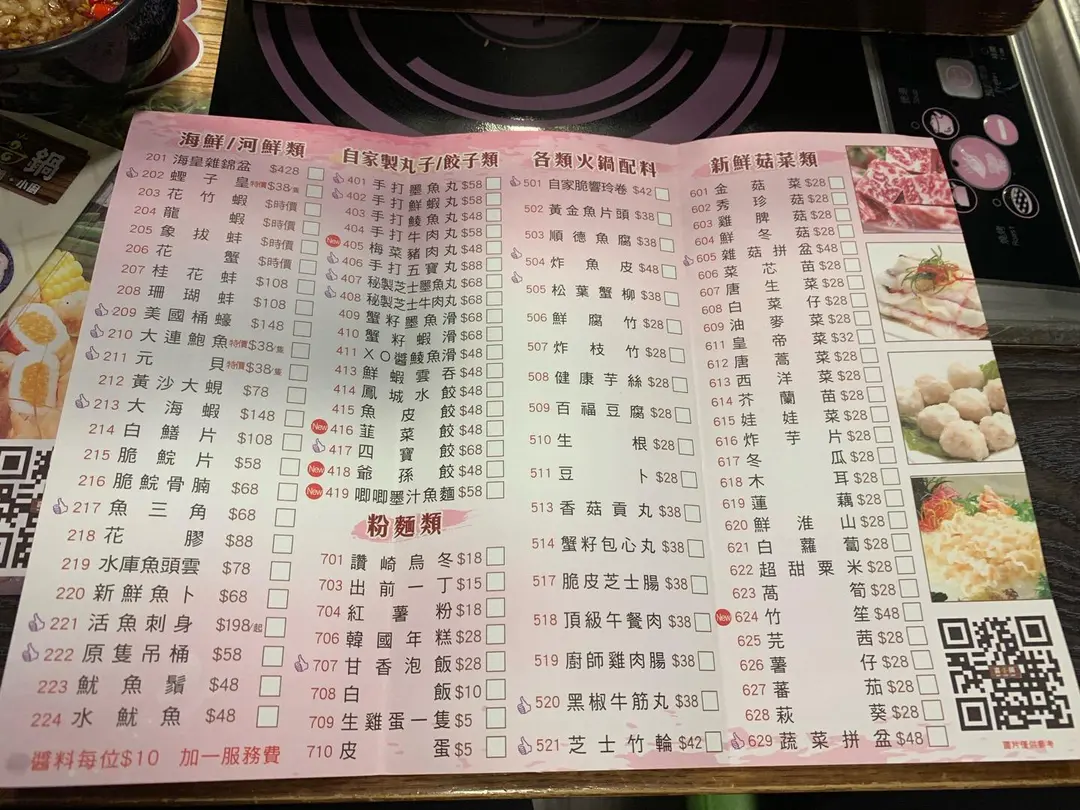 鍋
小廚
海鮮/河鮮類
201 海皇雜錦盆 $428
202 蟶子皇 特價$38/隻
203 花竹蝦 $時價
204 龍蝦 $時價
205 象拔蚌 $時價
206 花蟹 $時價
207 桂花蚌 $108
208 珊瑚蚌 $108
209 美國桶蠔 $148
210 大連鮑魚 特價$38/隻
211 元貝 特價$38/隻
212 黃沙大蜆 $78
213 大海蝦 $148
214 白鱔片 $108
215 脆鯇片 $58
216 脆鯇骨腩 $68
217 魚三角 $68
218 花膠 $88
219 水庫魚頭雲 $78
220 新鮮魚卜 $68
221 活魚刺身 $198/起
222 原隻吊桶 $58
223 魷魚鬚 $48
224 水魷魚 $48
醬料每位$10 加一服務費
自家製丸子/餃子類
401 手打墨魚丸 $58
402 手打鮮蝦丸 $58
403 手打鯪魚丸 $58
404 手打牛肉丸 $58
New 405 梅菜豬肉丸 $48
406 手打五寶丸 $88
407 秘製芝士墨魚丸 $68
408 秘製芝士牛肉丸 $68
409 蟹籽墨魚滑 $68
410 蟹籽蝦滑 $68
411 XO醬鯪魚滑 $48
413 鮮蝦雲吞 $48
414 鳳城水餃 $48
415 魚皮餃 $48
New 416 韮菜餃 $48
417 四寶餃 $68
New 418 爺孫餃 $48
New 419 唧唧墨汁魚麵 $58
粉麵類
701 讚崎烏冬 $18
703 出前一丁 $15
704 紅薯粉 $18
706 韓國年糕 $28
707 甘香泡飯 $28
708 白飯 $10
709 生雞蛋一隻 $5
710 皮蛋 $5
各類火鍋配料
501 自家脆響玲卷 $42
502 黃金魚片頭 $38
503 順德魚腐 $38
504 炸魚皮 $48
505 松葉蟹柳 $38
506 鮮腐竹 $28
507 炸枝竹 $28
508 健康芋絲 $28
509 百福豆腐 $28
510 生根 $28
511 豆卜 $28
513 香菇貢丸 $38
514 蟹籽包心丸 $38
517 脆皮芝士腸 $38
518 頂級午餐肉 $38
519 廚師雞肉腸 $38
520 黑椒牛筋丸 $38
521 芝士竹輪 $42
新鮮菇菜類
601 金菇菜 $28
602 秀珍菇 $28
603 雞脾菇 $28
604 鮮冬菇 $28
605 雜菇拼盆 $48
606 菜芯苗 $28
607 唐生菜 $28
608 白菜仔 $28
609 油麥菜 $28
611 皇帝菜 $32
612 唐蒿菜 $28
613 西洋菜 $28
614 芥蘭苗 $28
615 娃娃菜 $28
616 炸芋片 $28
617 冬瓜 $28
618 木耳 $28
619 蓮藕 $28
620 鮮淮山 $28
621 白蘿蔔 $28
622 超甜粟米 $28
623 萵筍 $28
New 624 竹笙 $48
625 芫茜 $28
626 薯仔 $28
627 蕃茄 $28
628 萩葵 $28
629 蔬菜拼盆 $48
圖片僅供參考